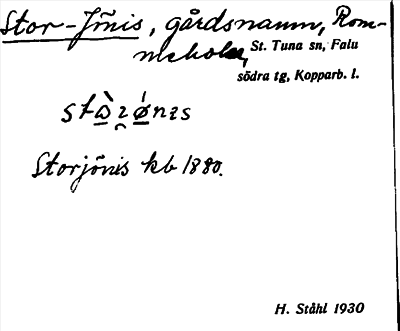 Stor-Jönis, gårdsnamn, Rom-
meholen, St. Tuna sn, Falu
södra tg, Kopparb. l.
Storjönis kb 1880.
H. Ståhl 1930